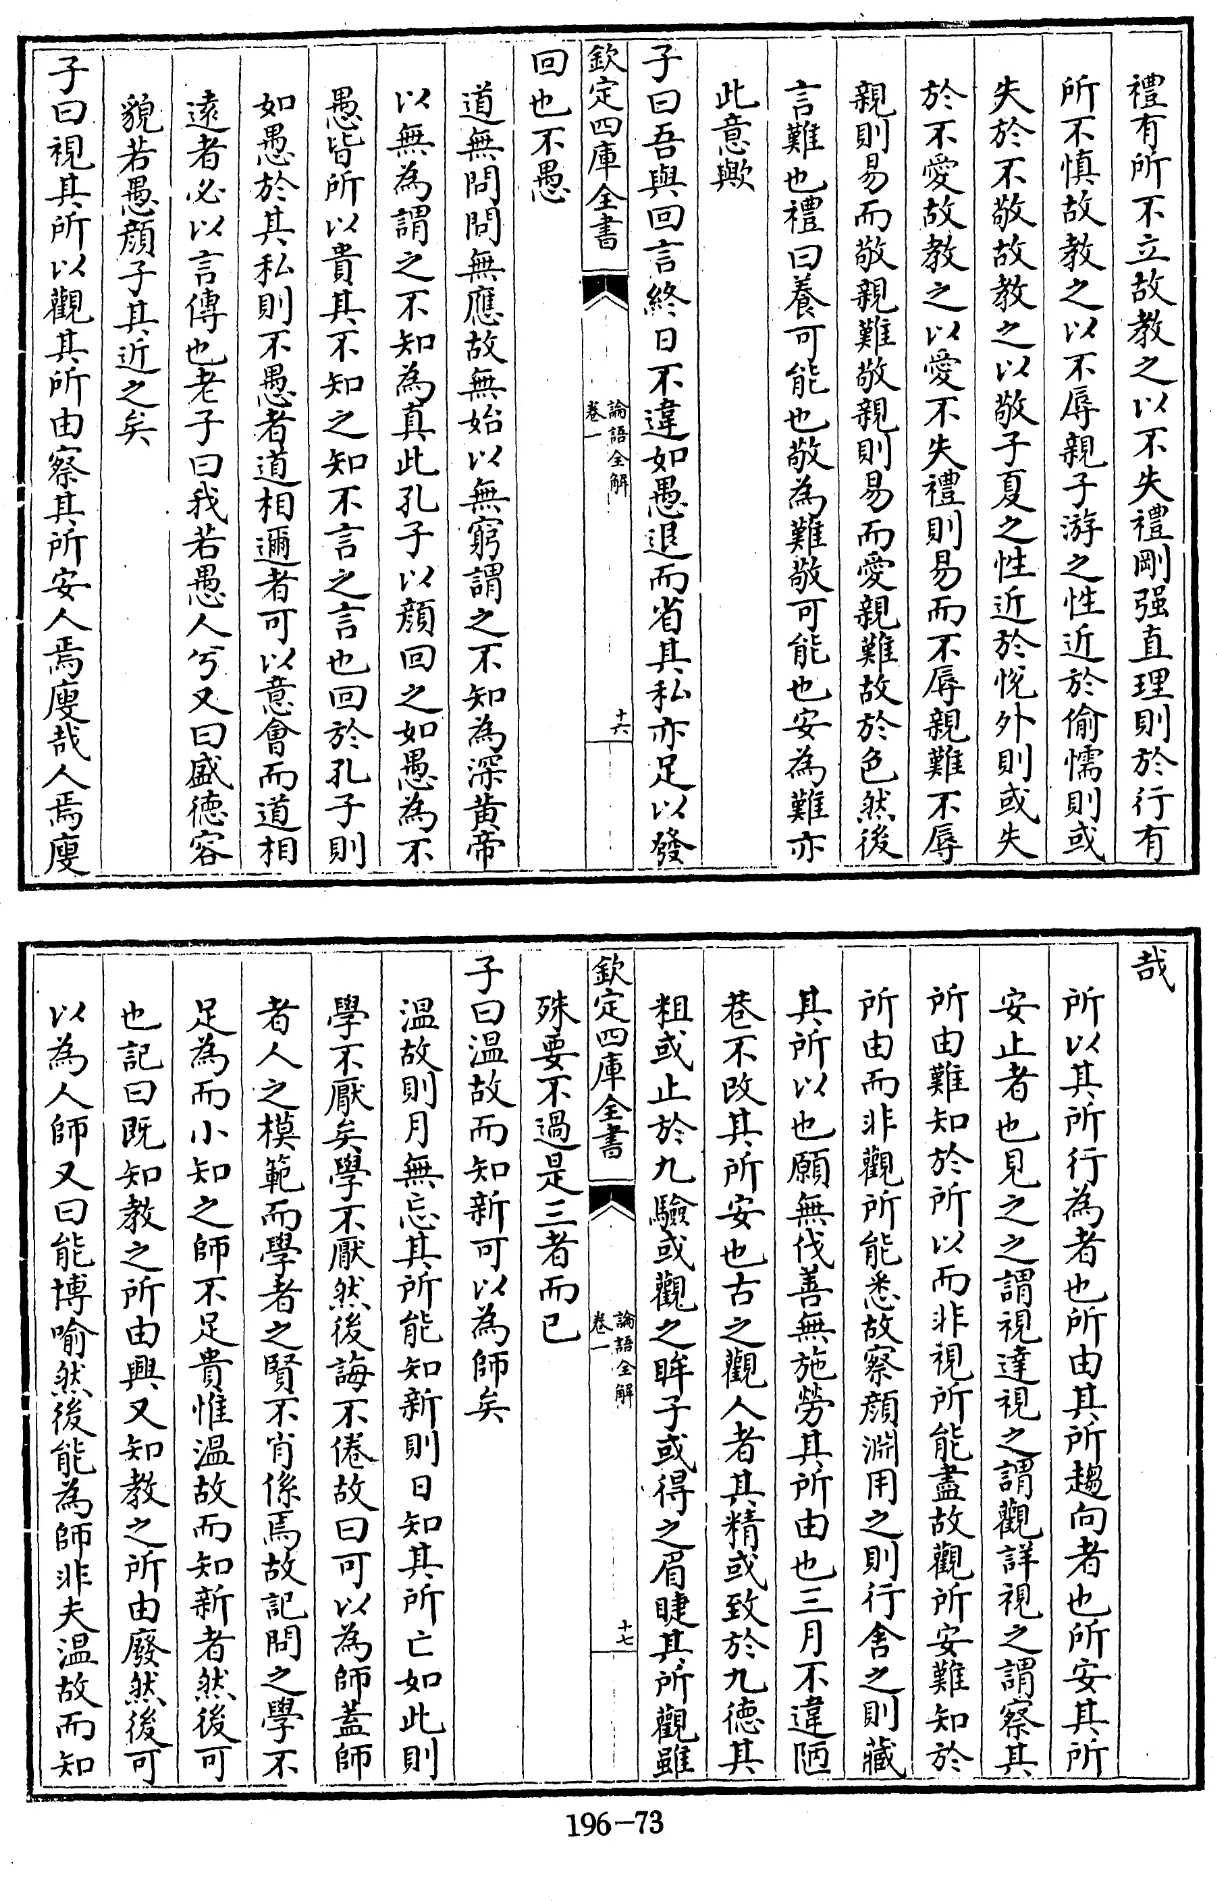 禮有所不立故教之以不失禮剛强直理則於行有
所不慎故教之以不辱親子游之性近於偷懦則或
失於不敬故教之以敬子夏之性近於悅外則或失
於不愛故教之以愛不失禮則易而不辱親難不辱
親則易而敬親難敬親則易而愛親難故於色然後
言難也禮曰養可能也敬為難敬可能也安為難亦
此意歟
子曰吾與回言終日不違如愚退而省其私亦足以發
欽定四庫全書
論語全解
卷一
十六
回也不愚
道無問問無應故無始以無窮謂之不知為深黄帝
以無為謂之不知為真此孔子以顔回之如愚為不
愚皆所以貴其不知之知不言之言也回於孔子則
如愚於其私則不愚者道相邇者可以意會而道相
逺者必以言傳也老子曰我若愚人兮又曰盛德容
貌若愚顔子其近之矣
子曰視其所以觀其所由察其所安人焉廋哉人焉廋
哉
所以其所行為者也所由其所趨向者也所安其所
安止者也見之之謂視達視之謂觀詳視之謂察其
所由難知於所以而非視所能盡故觀所安難知於
所由而非觀所能悉故察顔淵用之則行舍之則藏
其所以也願無伐善無施勞其所由也三月不違陋
巷不改其所安也古之觀人者其精或致於九德其
粗或止於九驗或觀之眸子或得之眉睫其所觀雖
欽定四庫全書
論語全解
卷一
十七
殊要不過是三者而已
子曰温故而知新可以為師矣
温故則月無忘其所能知新則日知其所亡如此則
學不厭矣學不厭然後誨不倦故曰可以為師蓋師
者人之模範而學者之賢不肖係焉故記問之學不
足為而小知之師不足貴惟温故而知新者然後可
也記曰既知教之所由興又知教之所由廢然後可
以為人師又曰能博喻然後能為師非夫温故而知
196-73